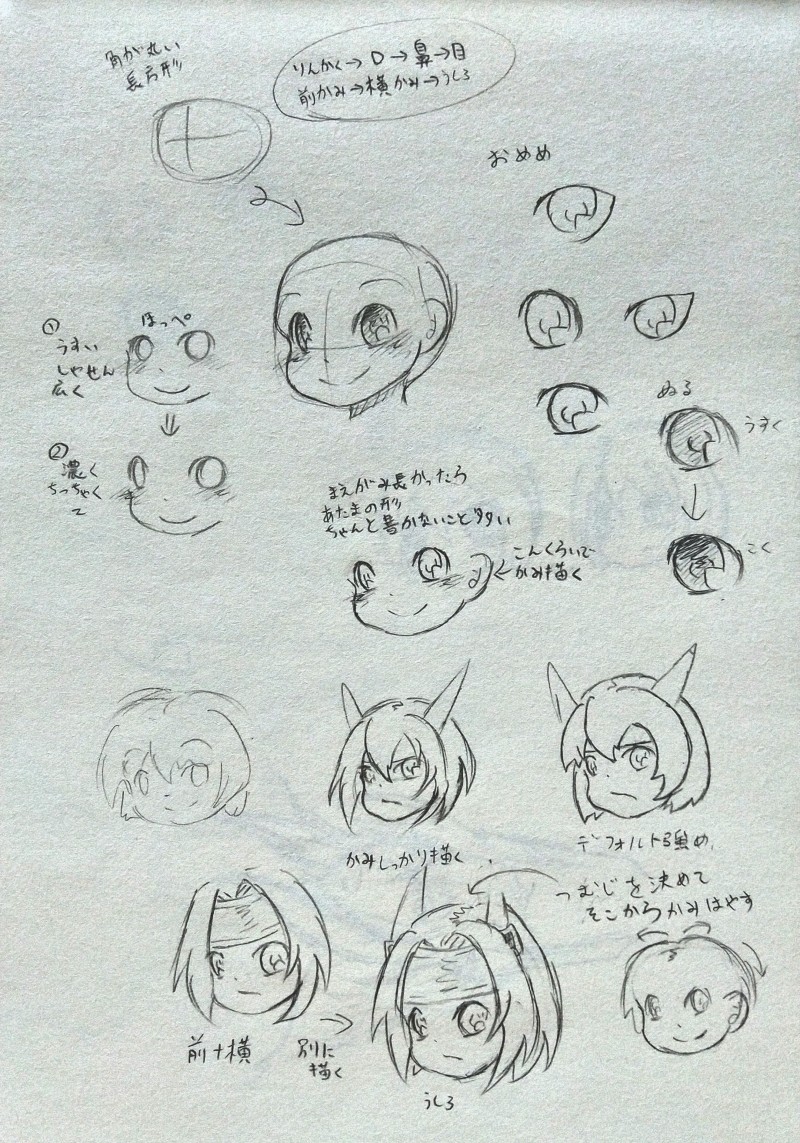 角が丸い
長方形
りんかく→D→鼻→目
前かみ→横かみ→うしろ
おめめ
①
うすい
しゃせん
広く
ほっぺ
②
濃く
ちっちゃく
て
ぬる
うすく
こく
まえがみ長かったら
あたまの形
ちゃんと書かないこと多い
こんくらいで
かみ描く
かみしっかり描く
デフォルト強め
つむじを決めて
そこからかみはやす
前+横
別に
描く
うしろ